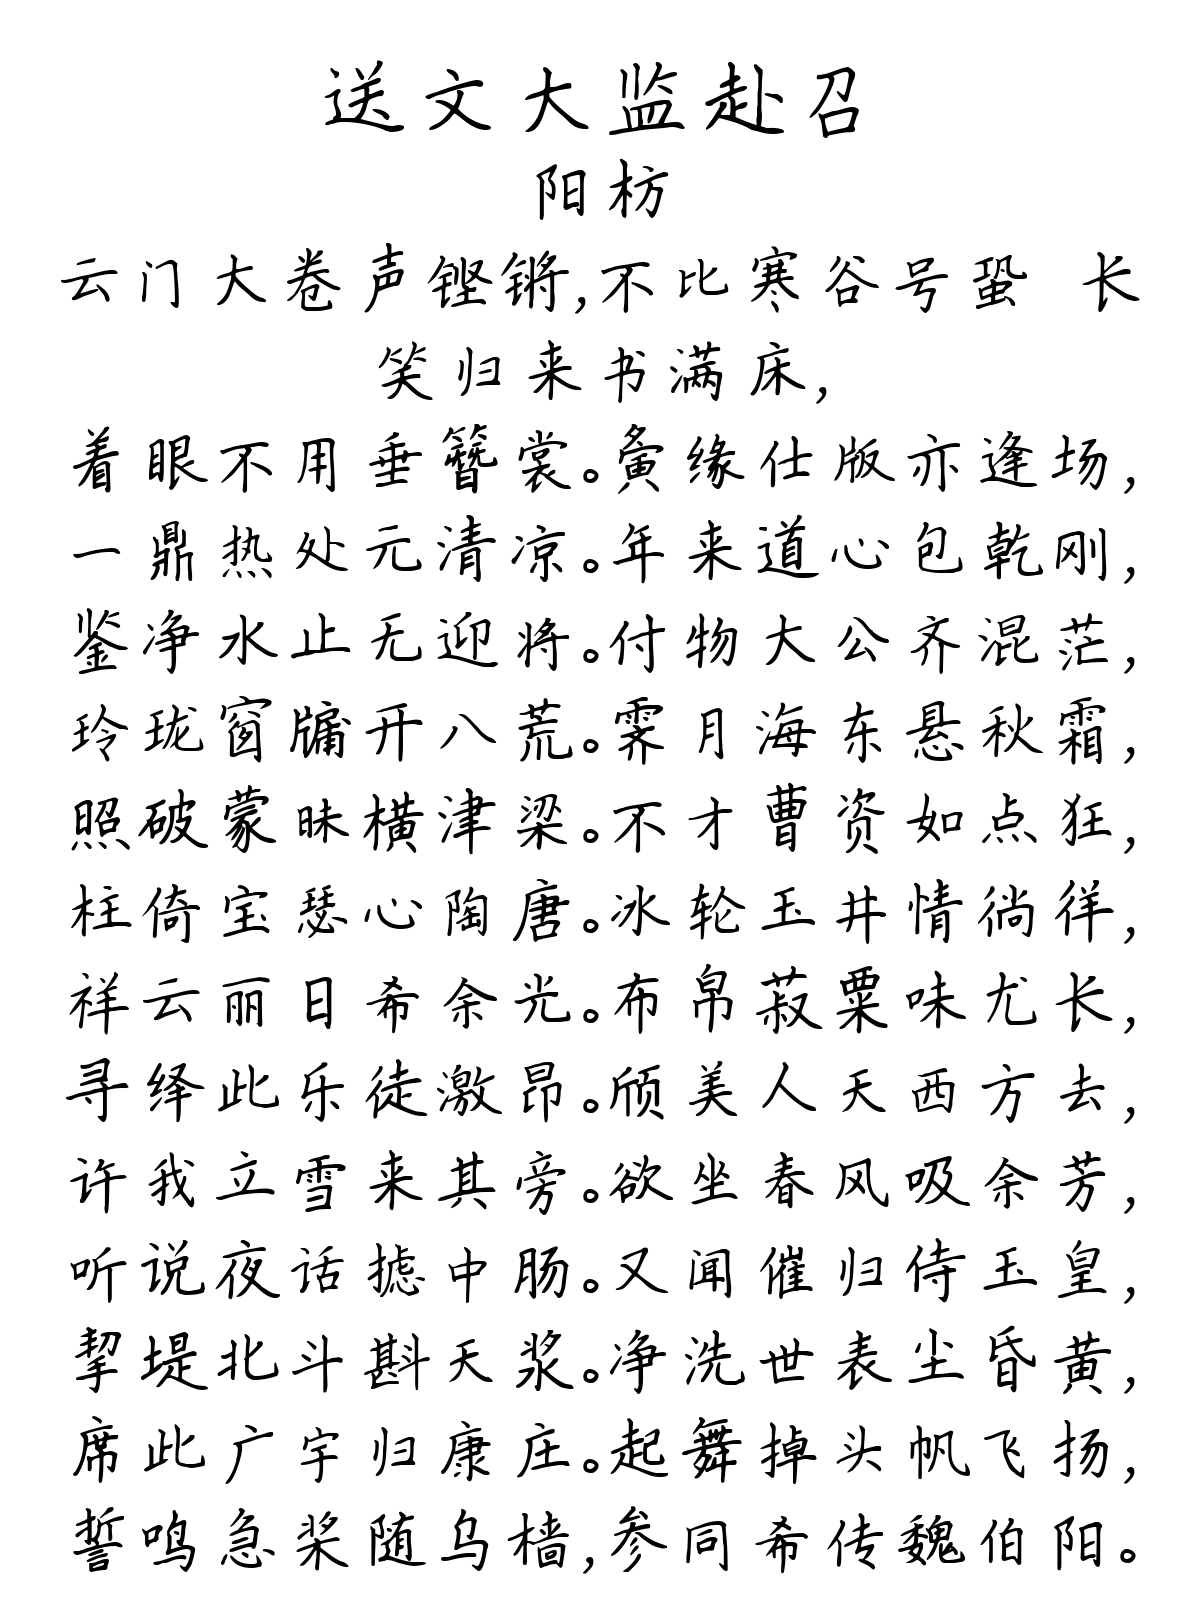 送文大监赴召
阳枋
云门大卷声铿锵,不比寒谷号蛩 长
笑归来书满床,
着眼不用垂簪裳。夤缘仕版亦逢场,
一鼎热处元清凉。年来道心包乾刚,
鉴净水止无迎将。付物大公齐混茫,
玲珑窗牖开八荒。霁月海东悬秋霜,
照破蒙昧横津梁。不才曹资如点狂,
柱倚宝瑟心陶唐。冰轮玉井情徜徉,
祥云丽日希余光。布帛菽粟味尤长,
寻绎此乐徒激昂。颀美人天西方去,
许我立雪来其旁。欲坐春风吸余芳,
听说夜话摅中肠。又闻催归侍玉皇,
挈堤北斗斟天浆。净洗世表尘昏黄,
席此广宇归康庄。起舞掉头帆飞扬,
誓鸣急桨随乌樯,参同希传魏伯阳。